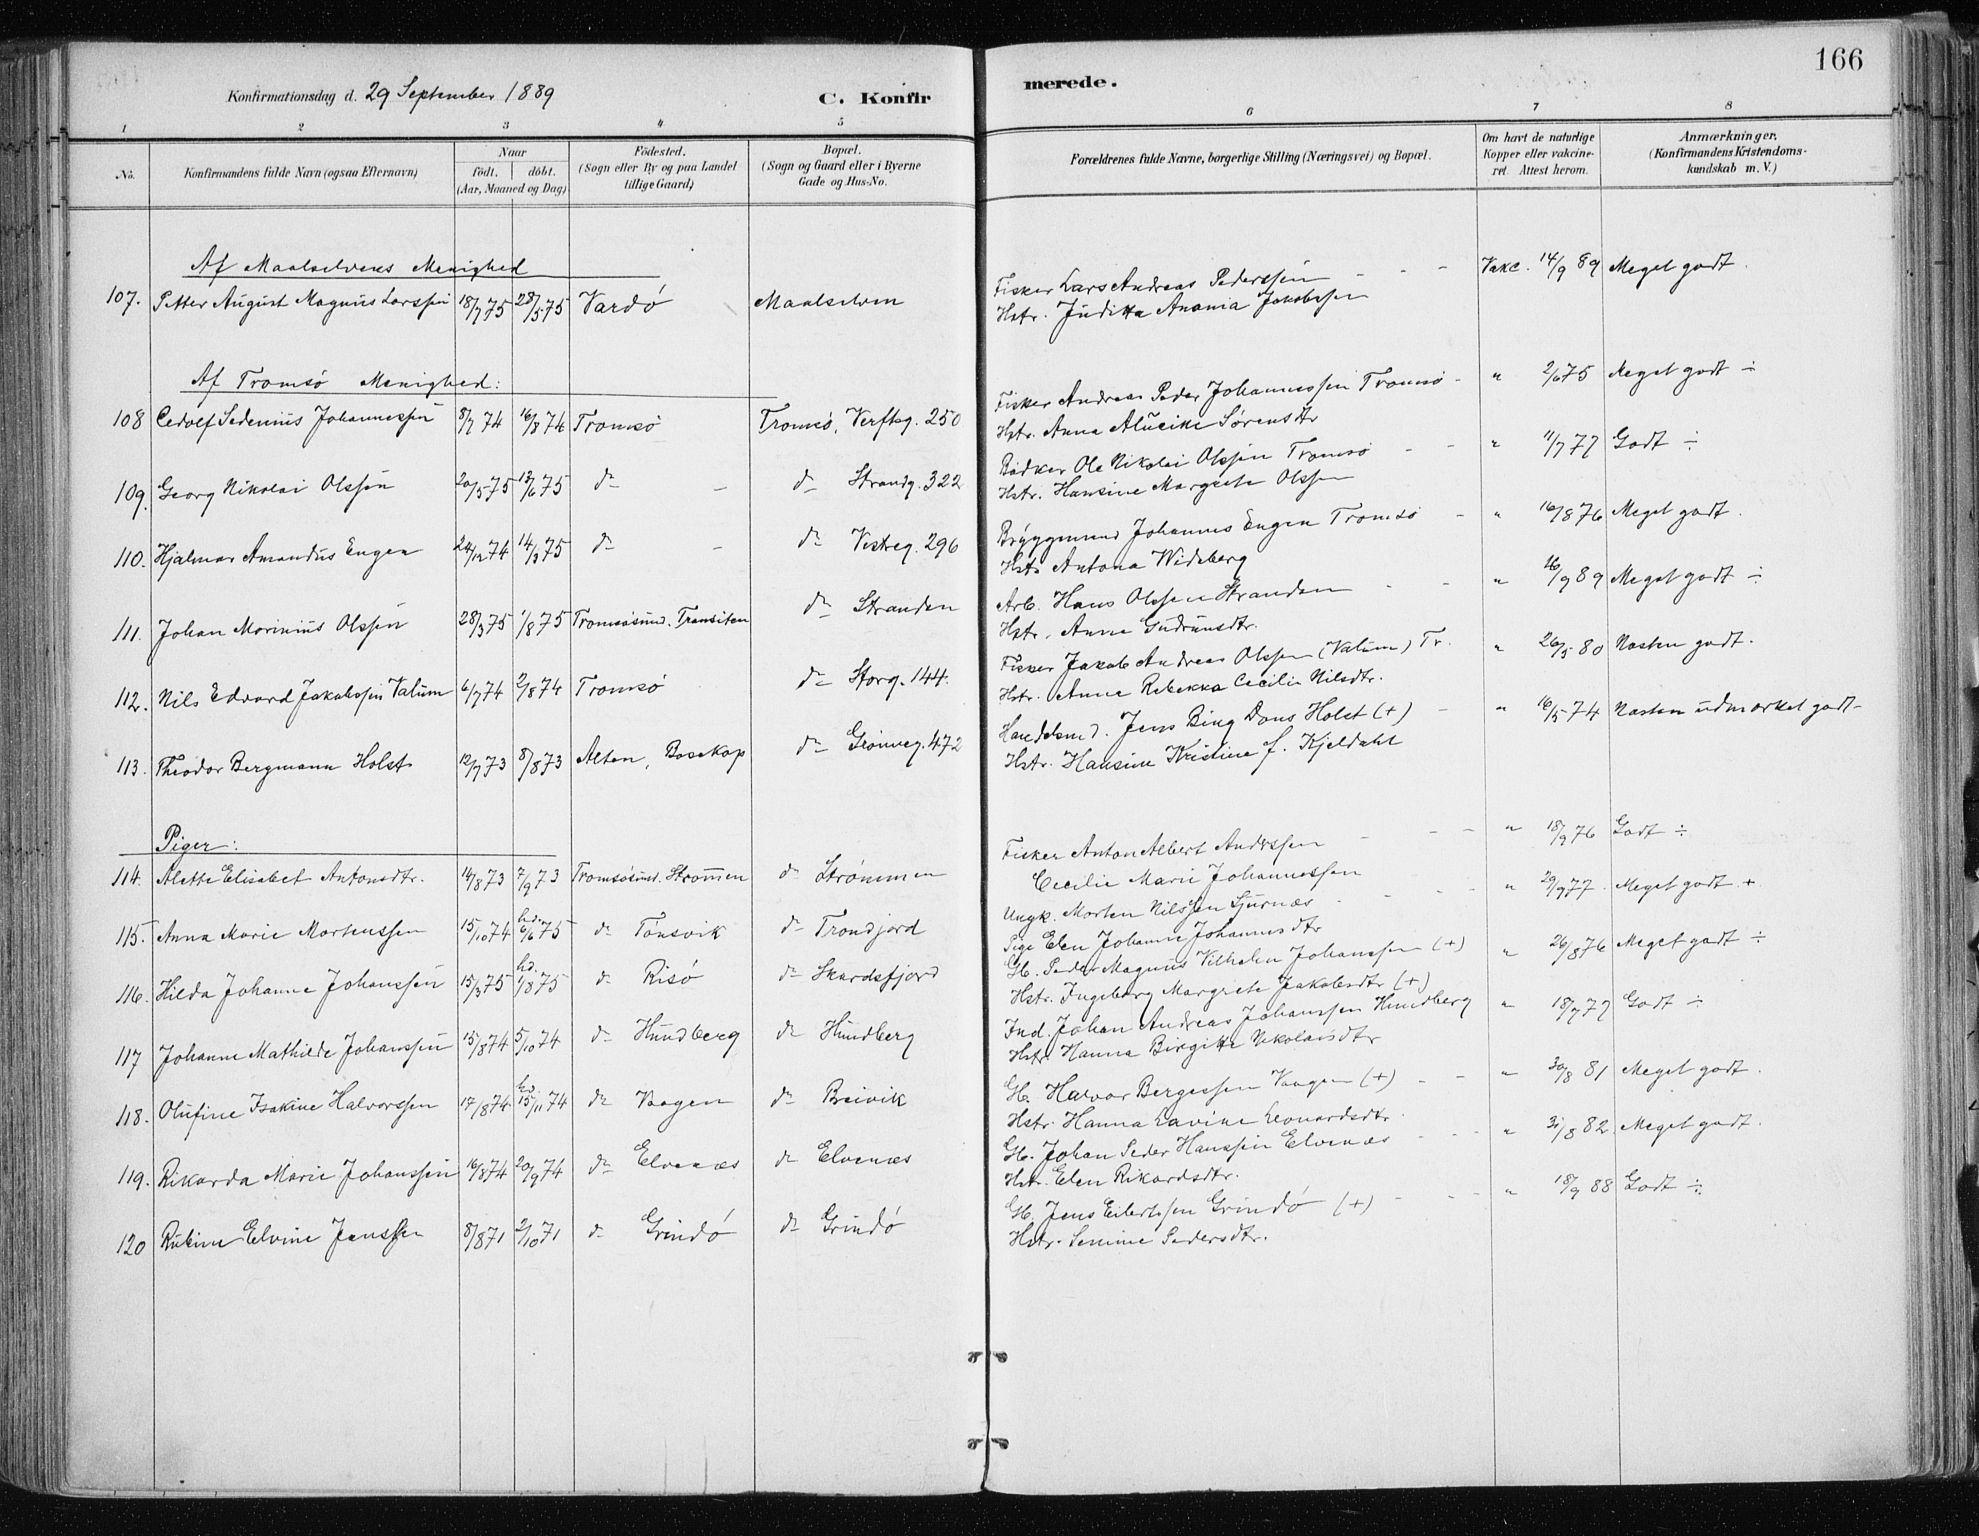 166
Konfirmationsdag d. 29 September 1889 C. Konfir merede.
1 2 3 4 5 6 7 8
No. Konfirmandens fulde Navn (ogsaa Efternavn) Naar födt. döbt. (Aar, Maaned og Dag) Födested. (Sogn eller By og paa Landet tillige Gaard) Bopæl. (Sogn og Gaard eller i Byerne Gade og Hus-No. Forældrenes fulde Navne, borgerlige Stilling (Næringsvei) og Bopæl. Om havt de naturlige Kopper eller vakcineret. Attest herom. Anmærkninger. (Konfirmandens Kristendomskundskab m. V.)
Af Maalselvens Menighed
107. Petter August Magnus Larssen 18/7 75 28/5 75 Vardö Maalselven Fisker Lars Andreas Pederssen - - - Vakc. 14/9 89 Meget godt.
Hstr. Juditta Anania Jakobssen
Af Tromsö Menighed:
108 Cedolf Sedenius Johannessen 8/7 74 16/8 74 Tromsö Tromsö, Verftsg. 250 Fisker Andreas Peder Johannessen Tromsö - " 2/6 75 Meget godt ÷
Hstr. Anna Sörensdtr
109. Georg Nikolai Olssen 20/5 75 13/6 75 do - do Strandg. 322 Bödker Ole Nikolai Olssen Tromsö - - " 11/7 77 Godt ÷
Hstr. Hansine Margrete Olssen
110. Hjalmar Amandus Engen 24/12 74 14/3 75 do - do Vestreg. 296 Bryggemand Johannes Engen Tromsö - " 16/8 76 Meget godt.
Hstr Antona Wideberg
111. Johan Morinius Olssen 28/3 75 1/8 75 Tromsösund. Transiten do Stranden Arb. Hans Olssen Stranden - - " 16/9 89 Meget godt ÷
Hstr. Anne Gudrunsdtr.
112. Nils Edvard Jakobssen Valum 6/7 74 2/8 74 Tromsö do Storg. 144. Fisker Jakob Andreas Olssen (Valum) Tr. " 26/5 80 Næsten godt.
Hstr. Anne Rebekka Cecilie Nilsdtr.
113. Theodor Bergmann Holst 12/7 73 8/8 73 Alten, Bosekop do Grönneg. 472 Handelsmd. Jens Bing Dons Holst (+) - " 16/5 74 Næsten udmærket godt-
Hstr. Hansine Kristine f. Kjeldahl
Piger:
114. Alette Elisabet Antonsdtr. 14/8 73 7/9 73 Tromsösund. Strömmen do Strömmen Fisker Anton Albert Anderssen - - - " 18/9 76 Godt ÷
Cecilie Marie Johannessen
115. Anna Marie Mortenssen 15/10 74 hd. 6/6 75 do Tönsvik do Trondjord Ungk. Morten Nilssen Sjurnæs - - - " 29/9 77. Meget godt. +
Pige Elen Johanne Johannesdtr
116. Hilda Johanne Johanssen 15/3 75 hd. 1/8 75 do Risö do Skardsfjord Gb. Peder Magnus Vilhelm Johanssen (+) " 26/8 76 Meget godt ÷
Hstr. Ingeborg Margrete Jakobsdtr (+)
117 Johanne Mathilde Johanssen 15/8 74 5/10 74 do Hundberg do Hundberg Ind. Johan Andreas Johanssen Hundberg " 18/7 77 Godt ÷
Hstr Hanna Birgitte Nikolaisdtr
118. Olufine Isakine Halvorssen 17/8 74 hd. 15/11 74 do Vaagen do Breivik Gb. Halvor Bergessen Vaagen (+) - - " 30/8 81 Meget godt.
Hstr. Hanna Lavine Leonardsdtr.
119. Rikarda Marie Johanssen 16/8 74 20/9 74 do Elvenæs do Elvenæs Gb. Johan Peder Hanssen Elvenæs - - " 31/8 82. Meget godt.
Hstr. Elen Rikardsdtr.
120 Rukine Elvine Jenssen 8/8 71 2/10 71 do Grindö do Grindö Gb. Jens Eilertssen Grindö (+) - - - " 18/9 88 Godt ÷
Hstr. Semine Pedersdtr.